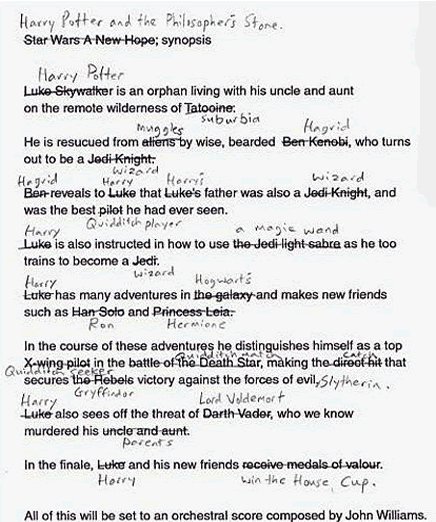 Harry Potter and the Philosopher's Stone.
Star Wars A New Hope; synopsis
Harry Potter
Luke Skywalker is an orphan living with his uncle and aunt
on the remote wilderness of Tatooine.
suburbia
muggles Hagrid
He is resucued from aliens by wise, bearded Ben Kenobi, who turns
out to be a Jedi Knight.
wizard
Hagrid Harry Harry's wizard
Ben reveals to Luke that Luke's father was also a Jedi Knight, and
was the best pilot he had ever seen.
Quidditch player
Harry a magic wand
Luke is also instructed in how to use the Jedi light sabre as he too
trains to become a Jedi.
wizard
Harry Hogwarts
Luke has many adventures in the galaxy and makes new friends
such as Han Solo and Princess Leia.
Ron Hermione
In the course of these adventures he distinguishes himself as a top
Quidditch match catch
X-wing pilot in the battle of the Death Star, making the direct hit that
Quidditch seeker
secures the Rebels victory against the forces of evil, Slytherin.
Gryffindor
Harry Lord Voldemort
Luke also sees off the threat of Darth Vader, who we know
murdered his uncle and aunt.
parents
In the finale, Luke and his new friends receive medals of valour.
Harry win the House Cup.
All of this will be set to an orchestral score composed by John Williams.